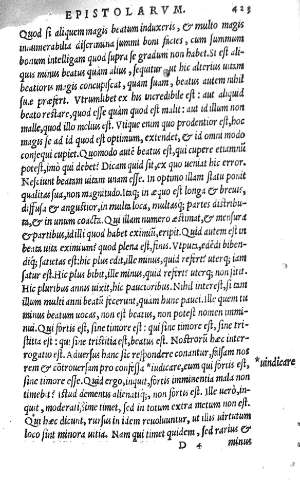 EPISTOLARVM. 423
Quod si aliquem magis beatum induxeris, & multo magis
innumerabilia discrimina summi boni facies, cum summum
bonum intelligam quod supra se gradum non habet. Si est ali-
quis minus beatus quàm alius, sequitur ut hic alterius uitam
beatioris magis concupiscat, quàm suam, beatus autem nihil
suæ præfert. Vtrumlibet ex his incredibile est: aut aliquid
beato restare, quod esse quàm quod est malit: aut id illum non
malle, quod illo melius est. Vtique enim quo prudentior est, hoc
magis se ad id quod est optimum, extendet, & id omni modo
consequi cupiet. Quomodo autē beatus est, qui cupere etiamnū
potest, imò qui debet? Dicam quid sit, ex quo ueniat hic error.
Nesciunt beatam uitam unam esse. In optimo illam statu ponit
qualitas sua, non magnitudo. Itaq; in æquo est longa & breuis,
diffusa & angustior, in multa loca, multasq; partes distribu-
ta, & in unum coacta. Qui illam numero æstimat, & mensura
& partibus, id illi quod habet eximiū, eripit. Quid autem est in
beata uita eximium? quod plena est, finis. Vt puta, edēdi bibēn-
diq; satietas est: hic plus edit, ille minus, quid refert? uterq; iam
satur est. Hic plus bibit, ille minus, quid refert? uterq; non sitit.
Hic pluribus annis uixit, hic paucioribus. Nihil interest, si tam
illum multi anni beatū fecerunt, quam hunc pauci. Ille quem tu
minus beatum uocas, non est beatus, non potest nomen immi-
nui. Qui fortis est, sine timore est: qui sine timore est, sine tri-
stitia est: qui sine tristitia est, beatus est. Nostrorū hæc inter-
rogatio est. Aduersus hanc sic respondere conantur, falsam nos
rem & cōtrouersam pro confessa *iudicare, eum qui fortis est, *uindicare
sine timore esse. Quid ergo, inquit, fortis imminentia mala non
timebit? istud dementis alienatiq;, non fortis est. Ille uerò, in-
quit, moderatissime timet, sed in totum extra metum non est.
Qui hæc dicunt, rursus in idem reuoluuntur, ut illis uirtutum
loco sint minora uitia. Nam qui timet quidem, sed rarius &
D 4 minus